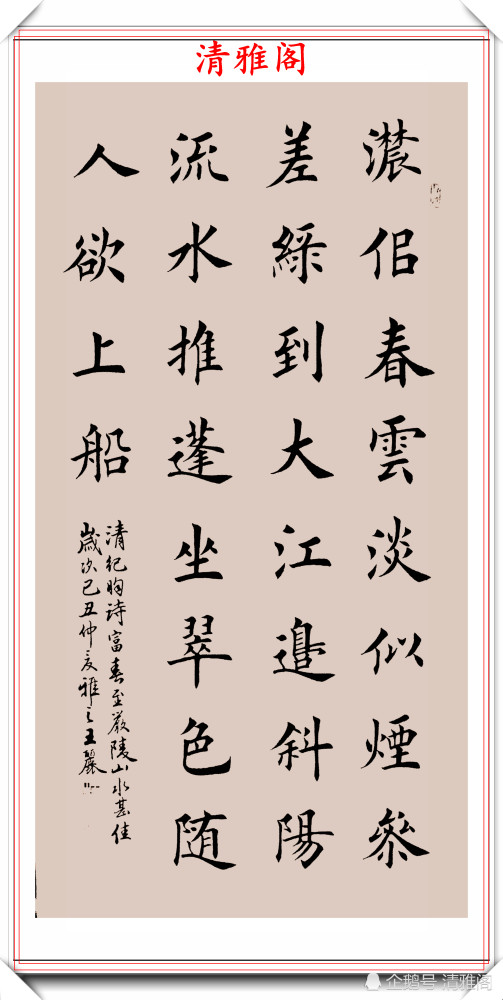 清雅阁
濃侣春雲淡似煙參
差綵到大江邉斜陽
流水推蓬坐翠色随
人欲上船
清纪昀诗富春至嚴陵山水甚佳
歲次己丑仲夏雅之王麗
企鹅号 清雅阁